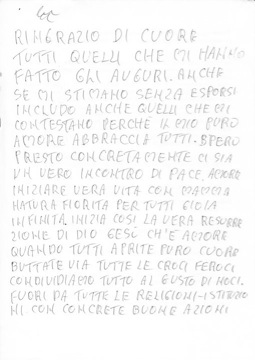 RINGRAZIO DI CUORE
TUTTI QUELLI CHE MI HANNO
FATTO GLI AUGURI. ANCHE
SE MI STIMANO SENZA ESPORSI
INCLUDO ANCHE QUELLI CHE MI
CONTESTANO PERCHÉ IL MIO PURO
AMORE ABBRACCIA TUTTI. SPERO
PRESTO CONCRETAMENTE CI SIA
UN VERO INCONTRO DI PACE, AMORE
INIZIARE VERA VITA CON MAMMA
NATURA FIORITA PER TUTTI GIOIA
INFINITA. INIZIA COSI LA VERA RESURRE
ZIONE DI DIO GESÙ CH'È AMORE
QUANDO TUTTI APRITE PURO CUORE
BUTTATE VIA TUTTE LE CROCI FEROCI
CONDIVIDIAMO TUTTO AL GUSTO DI NOCI.
FUORI DA TUTTE LE RELIGIONI-ISTITUZIO
NI. CON CONCRETE BUONE AZIONI